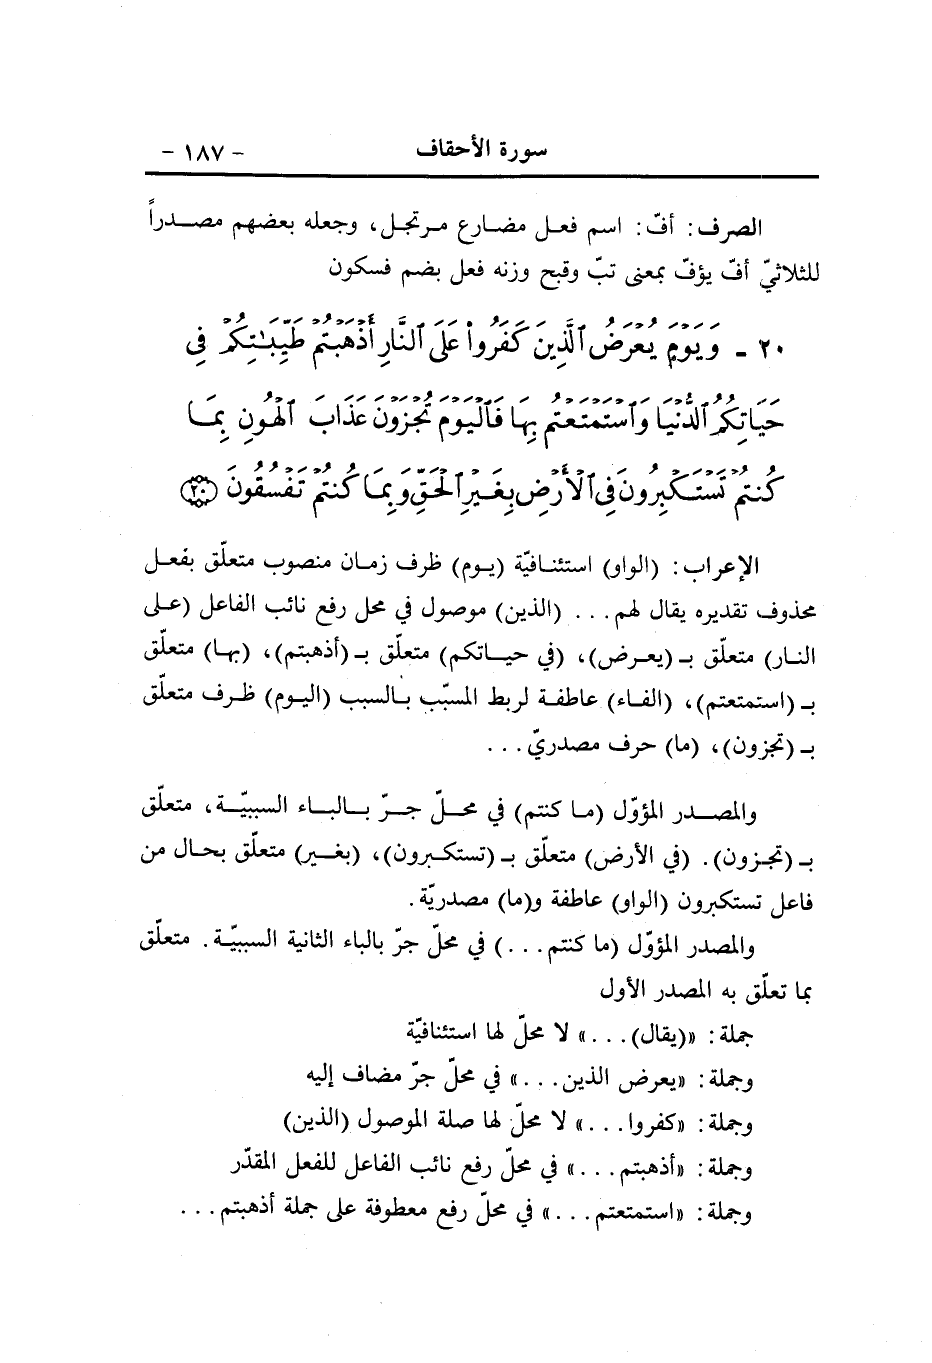 سورة الأحقاف - ١٨٧ -
الصرف: أفّ: اسم فعل مضارع مرتجل، وجعله بعضهم مصدراً
للثلاثيّ أفّ يؤفّ بمعنى تبّ وقبح وزنه فعل بضم فسكون
٢٠ - وَيَوْمَ يُعْرَضُ ٱلَّذِينَ كَفَرُوا۟ عَلَى ٱلنَّارِ أَذْهَبْتُمْ طَيِّبَٰتِكُمْ فِى
حَيَاتِكُمُ ٱلدُّنْيَا وَٱسْتَمْتَعْتُم بِهَا فَٱلْيَوْمَ تُجْزَوْنَ عَذَابَ ٱلْهُونِ بِمَا
كُنتُمْ تَسْتَكْبِرُونَ فِى ٱلْأَرْضِ بِغَيْرِ ٱلْحَقِّ وَبِمَا كُنتُمْ تَفْسُقُونَ ۝٢٠
الإعراب: (الواو) استئنافيّة (يوم) ظرف زمان منصوب متعلّق بفعل
محذوف تقديره يقال لهم... (الذين) موصول في محل رفع نائب الفاعل (على
النار) متعلّق بـ (يعرض)، (في حياتكم) متعلّق بـ (أذهبتم)، (بها) متعلّق
بـ (استمتعتم)، (الفاء) عاطفة لربط المسبّب بالسبب (اليوم) ظرف متعلّق
بـ (تجزون)، (ما) حرف مصدريّ...
والمصدر المؤوّل (ما كنتم) في محلّ جرّ بالباء السببيّة، متعلّق
بـ (تجزون). (في الأرض) متعلّق بـ (تستكبرون)، (بغير) متعلّق بحال من
فاعل تستكبرون (الواو) عاطفة و(ما) مصدريّة.
والمصدر المؤوّل (ما كنتم...) في محلّ جرّ بالباء الثانية السببيّة. متعلّق
بما تعلّق به المصدر الأول
جملة: «(يقال)...» لا محلّ لها استئنافيّة
وجملة: «يعرض الذين...» في محلّ جرّ مضاف إليه
وجملة: «كفروا...» لا محلّ لها صلة الموصول (الذين)
وجملة: «أذهبتم...» في محلّ رفع نائب الفاعل للفعل المقدّر
وجملة: «استمتعتم...» في محلّ رفع معطوفة على جملة أذهبتم...